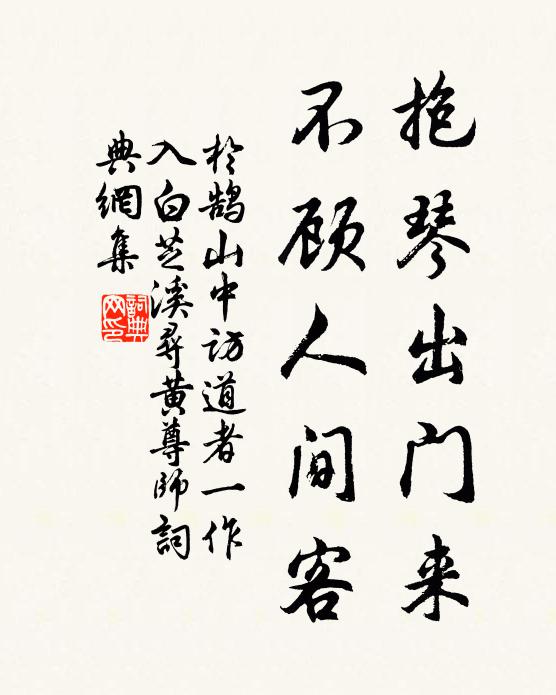 抱琴出门来
不顾人间客
於鹄山中访道者一作
入白芝溪尋黄尊師詞
典網集
詞典
网印